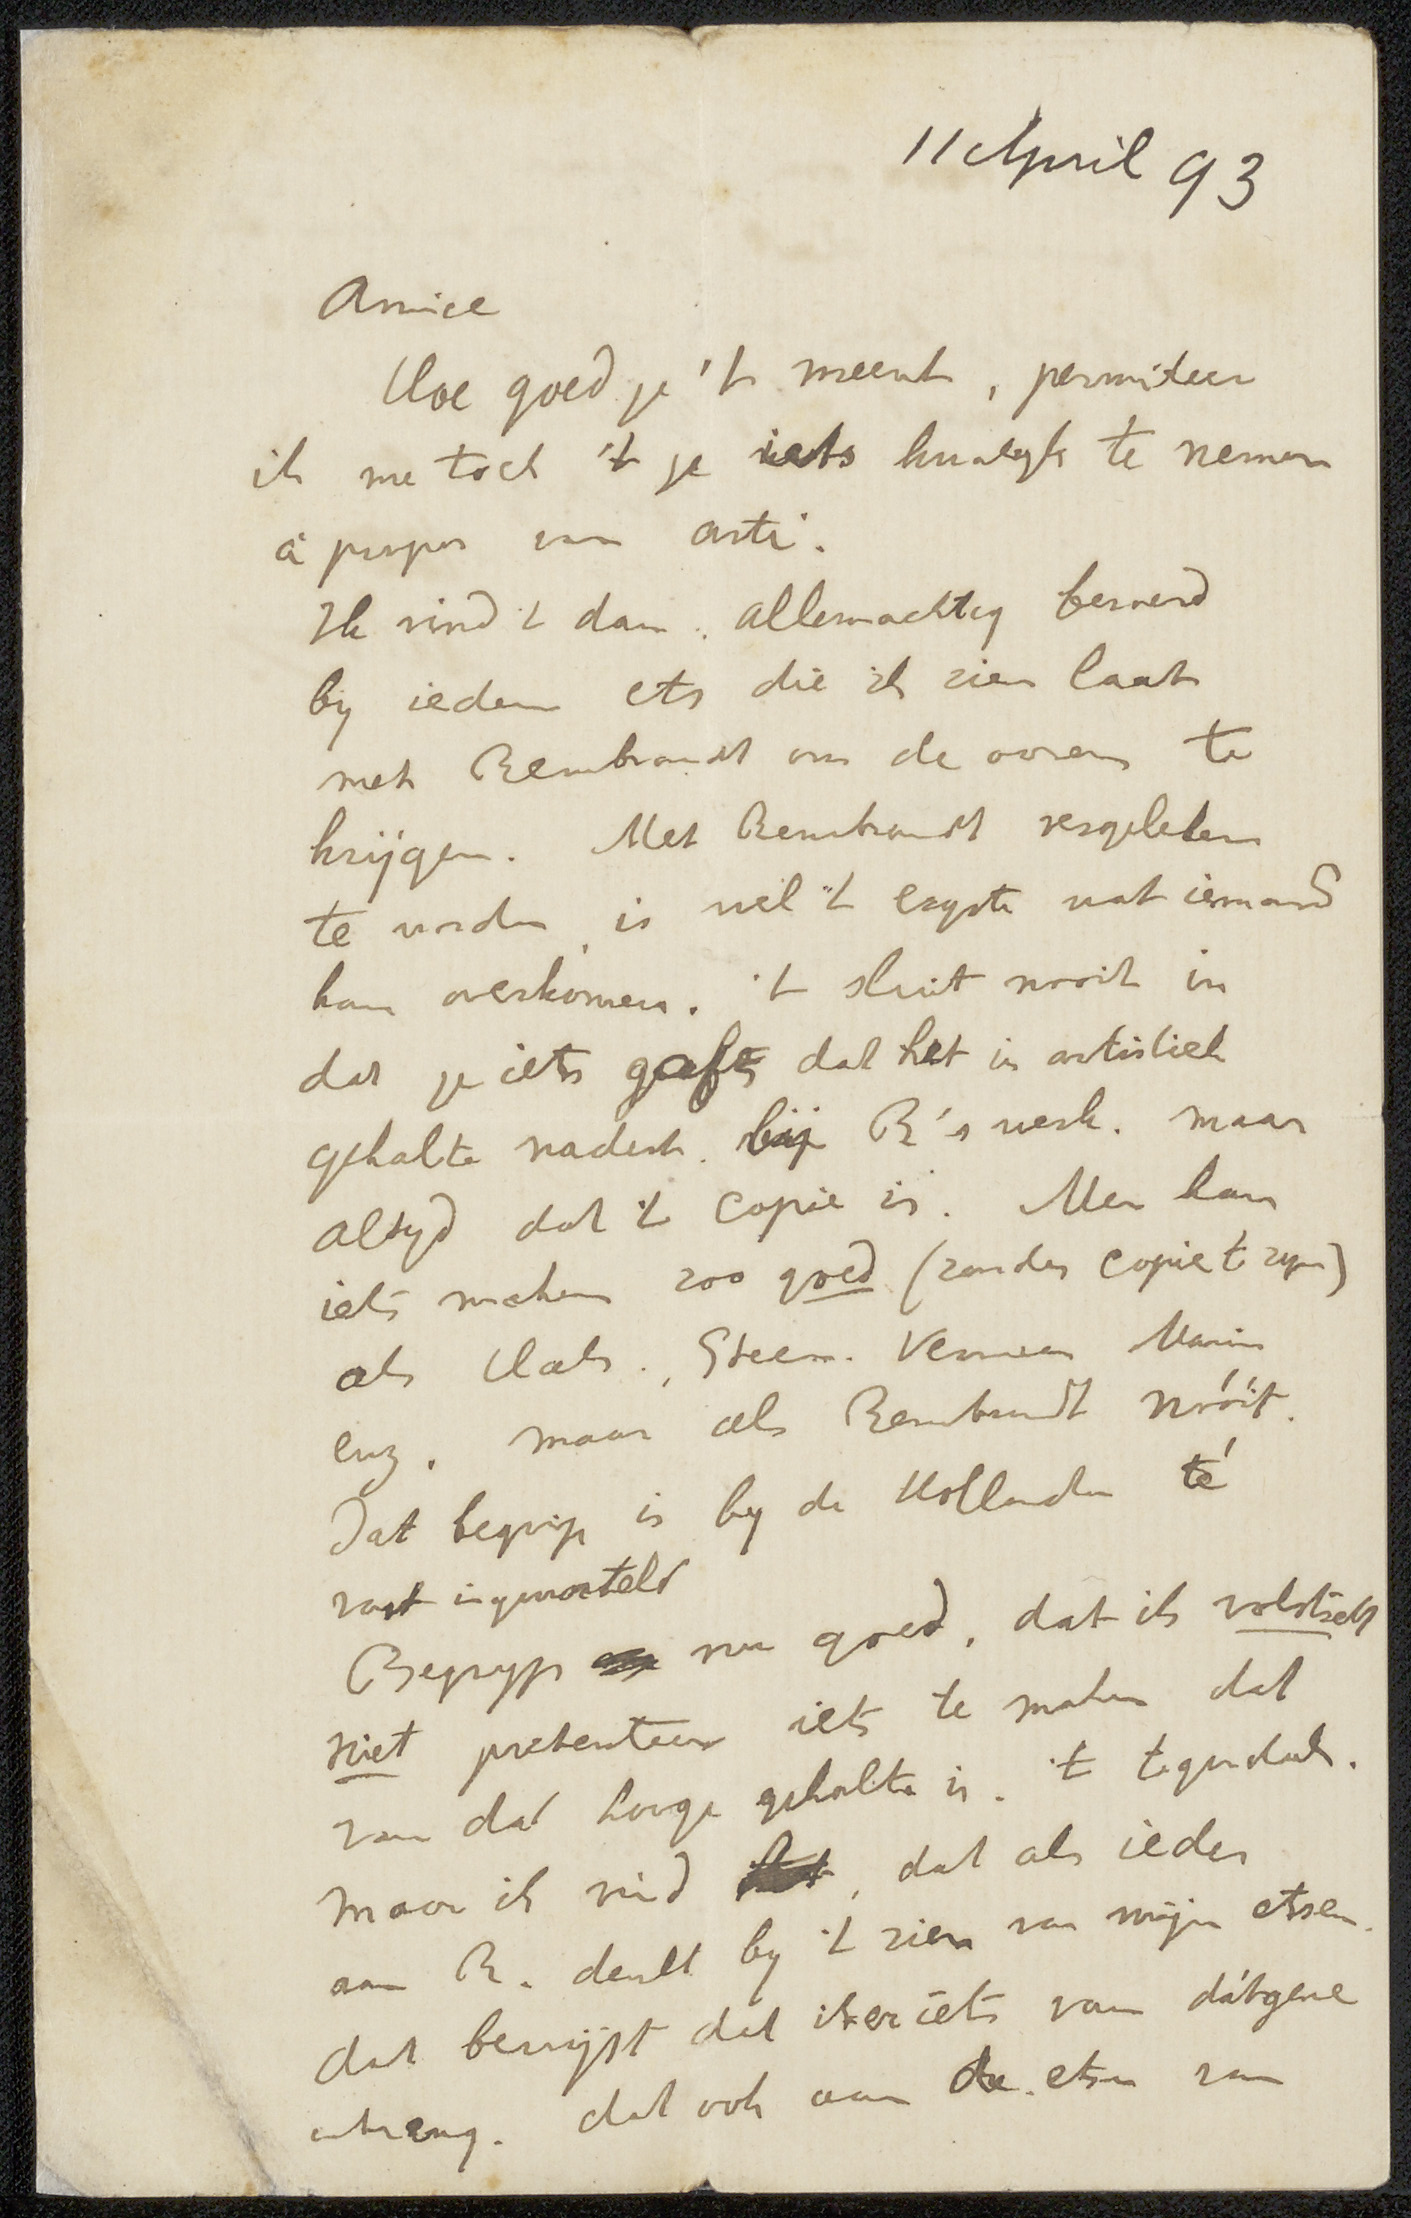 11 April 93
Amice
Hoe goed je 't meent, permiteer
ik me toch 't je iets kwalyk te nemen
à propos van arti.
Ik vind 't dan. allemachtig beroerd
by iedere ets die ik zien laat
met Rembrandt om de ooren te
krijgen. Met Rembrandt vergeleken
te worden is wel 't ergste wat iemand
kan overkomen. 't sluit nooit in
dat je iets geeft dat het in artistiek
gehalte nadert. bij R's werk. maar
altyd dat 't copie is. Men kan
iets maken zoo goed (zonder copie te zyn)
als Hals., Steen. Vermeer Maris
enz. maar als Rembrandt nóóit.
Dat begrip is by de Hollander té
vast ingeworteld
Begryp nu goed, dat ik volstrekt
niet pretenteer iets te maken dat
van dat hooge gehalte is. 't tegendeel.
maar ik vind , dat als ieder
aan R. denkt by 't zien van mijn etsen.
dat bewijst dat ik er iets van dátgene
inbreng. dat ook aan de etsen van